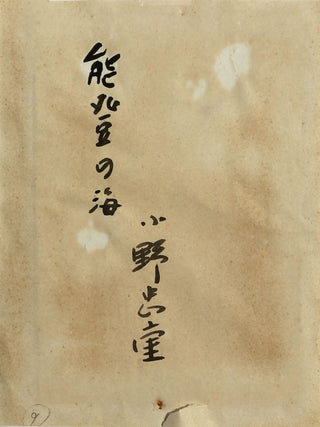 能登の海
小野忠重
9